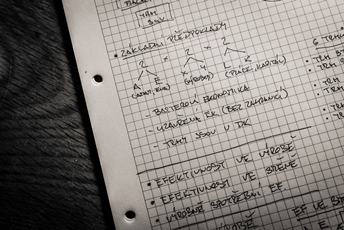 TRH
• ZÁKLADNÍ PŘEDPOKLADY
2 × 2 × 2
A E X Y L K
(ADAM, EVA) (PRÁCE, KAPITÁL)
- BARTEROVÁ EKONOMIKA
- UZAVŘENÁ EK (BEZ ZAHRANIČÍ)
- TRHY JSOU V DK
• EFEKTIVNOST VE VÝROBĚ
• EFEKTIVNOST VE SMĚNĚ
• VÝROBNĚ SPOTŘEBNÍ EF.
EF VE
6 TRHŮ
• TRH
• TRH
• TRH